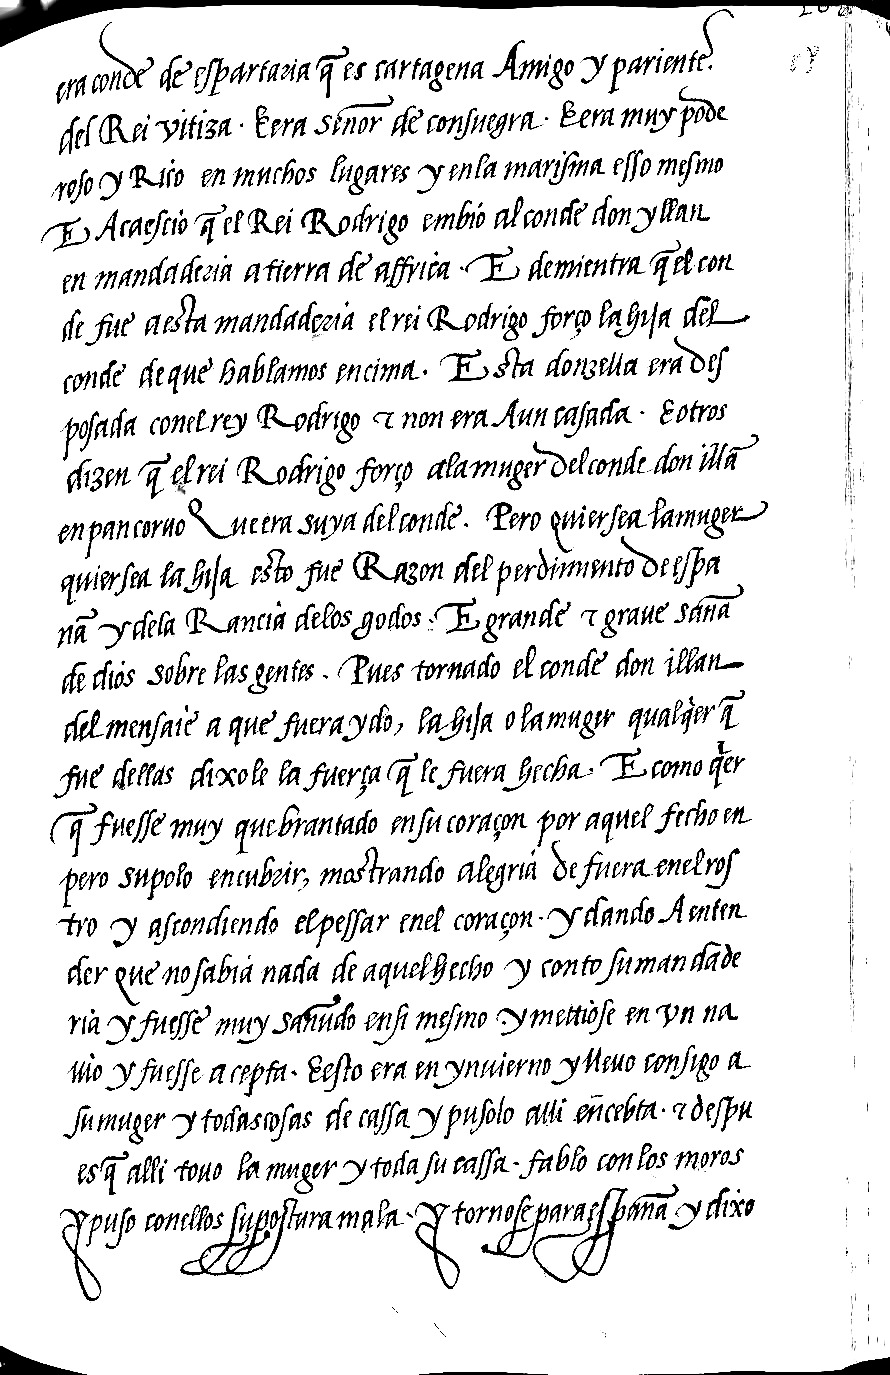 era conde de espartaria q̄ es cartagena Amigo y pariente
del Rei vitiza · E era señor de consuegra · E era muy pode
roso y Rico en muchos lugares y en la marisma esso mesmo
E Acaescio q̄ el Rei Rodrigo embio al conde don yllan
en mandaderia a tierra de affrica · E demientra q̄ el con
de fue a esta mandaderia el rei Rodrigo forço la hija del
conde de que hablamos encima · Esta donzella era des
posada con el rey Rodrigo ⁊ non era Aun casada · E otros
dizen q̄ el rei Rodrigo forço a la muger del conde don illā
en pancoruo Que era suya del conde. Pero quier sea la muger
quier sea la hija esto fue Razon del perdimiento de espa
ña y de la Rancia de los godos · E grande ⁊ graue saña
de dios sobre las gentes. Pues tornado el conde don illan
del mensaie a que fuera ydo, la hija o la muger qualq̄er q̄
fue dellas dixole la fuerça q̄ le fuera hecha · E como q̄er
q̄ fuesse muy quebrantado en su coraçon por aquel fecho en
pero supolo encubrir, mostrando alegria de fuera en el ros
tro y ascondiendo el pessar en el coraçon · y dando A enten
der que no sabia nada de aquel hecho y conto su mandade
ria y fuesse muy sañudo en si mesmo · y mettiose en vn na
uio y fuesse a cepta · E esto era en ynuierno y lleuo consigo a
su muger y todas cosas de cassa y pusolo alli en cebta · ⁊ despu
es q̄ alli touo la muger y toda su cassa · fablo con los moros
y puso con ellos supostura mala · y tornose para españa y dixo